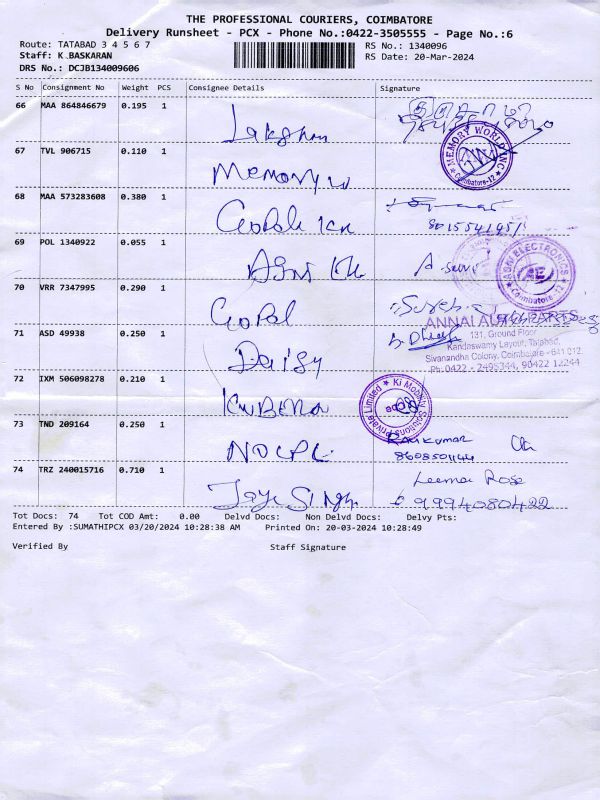 THE PROFESSIONAL COURIERS, COIMBATORE
Delivery Runsheet - PCX - Phone No.:0422-3505555 - Page No.:6
Route: TATABAD 3 4 5 6 7
RS No.: 1340096
Staff: K.BASKARAN
RS Date: 20-Mar-2024
DRS No.: DCJB134009606
S No Consignment No Weight PCS Consignee Details Signature
66 MAA 864846679 0.195 1
Lakshmi
67 TVL 906715 0.110 1
Memory w
MEMORY WORLD INC
Coimbatore-12
68 MAA 573283608 0.380 1
Gopala
69 POL 1340922 0.055 1
ASNI
ASNI ELECTRONICS
AE
Coimbatore-12
70 VRR 7347995 0.290 1
Gopal
71 ASD 49938 0.250 1
Daisy
131, Ground Floor
Kandaswamy Layout, Tatabad,
Sivanandha Colony, Coimbatore - 641 012.
72 IXM 506098278 0.210 1
Ki Mobility Solutions Private Limited
73 TND 209164 0.250 1
Ravikumar
8608501144
74 TRZ 240015716 0.710 1
Jaya Singh
Rose
9994080422
Tot Docs: 74 Tot COD Amt: 0.00 Delvd Docs: Non Delvd Docs: Delvy Pts:
Entered By :SUMATHIPCX 03/20/2024 10:28:38 AM Printed On: 20-03-2024 10:28:49
Verified By Staff Signature